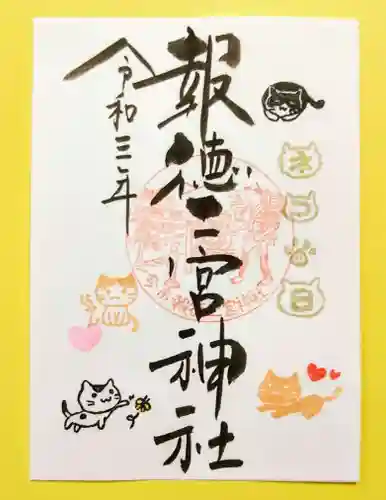 報徳二宮神社
令和三年
ネコの日